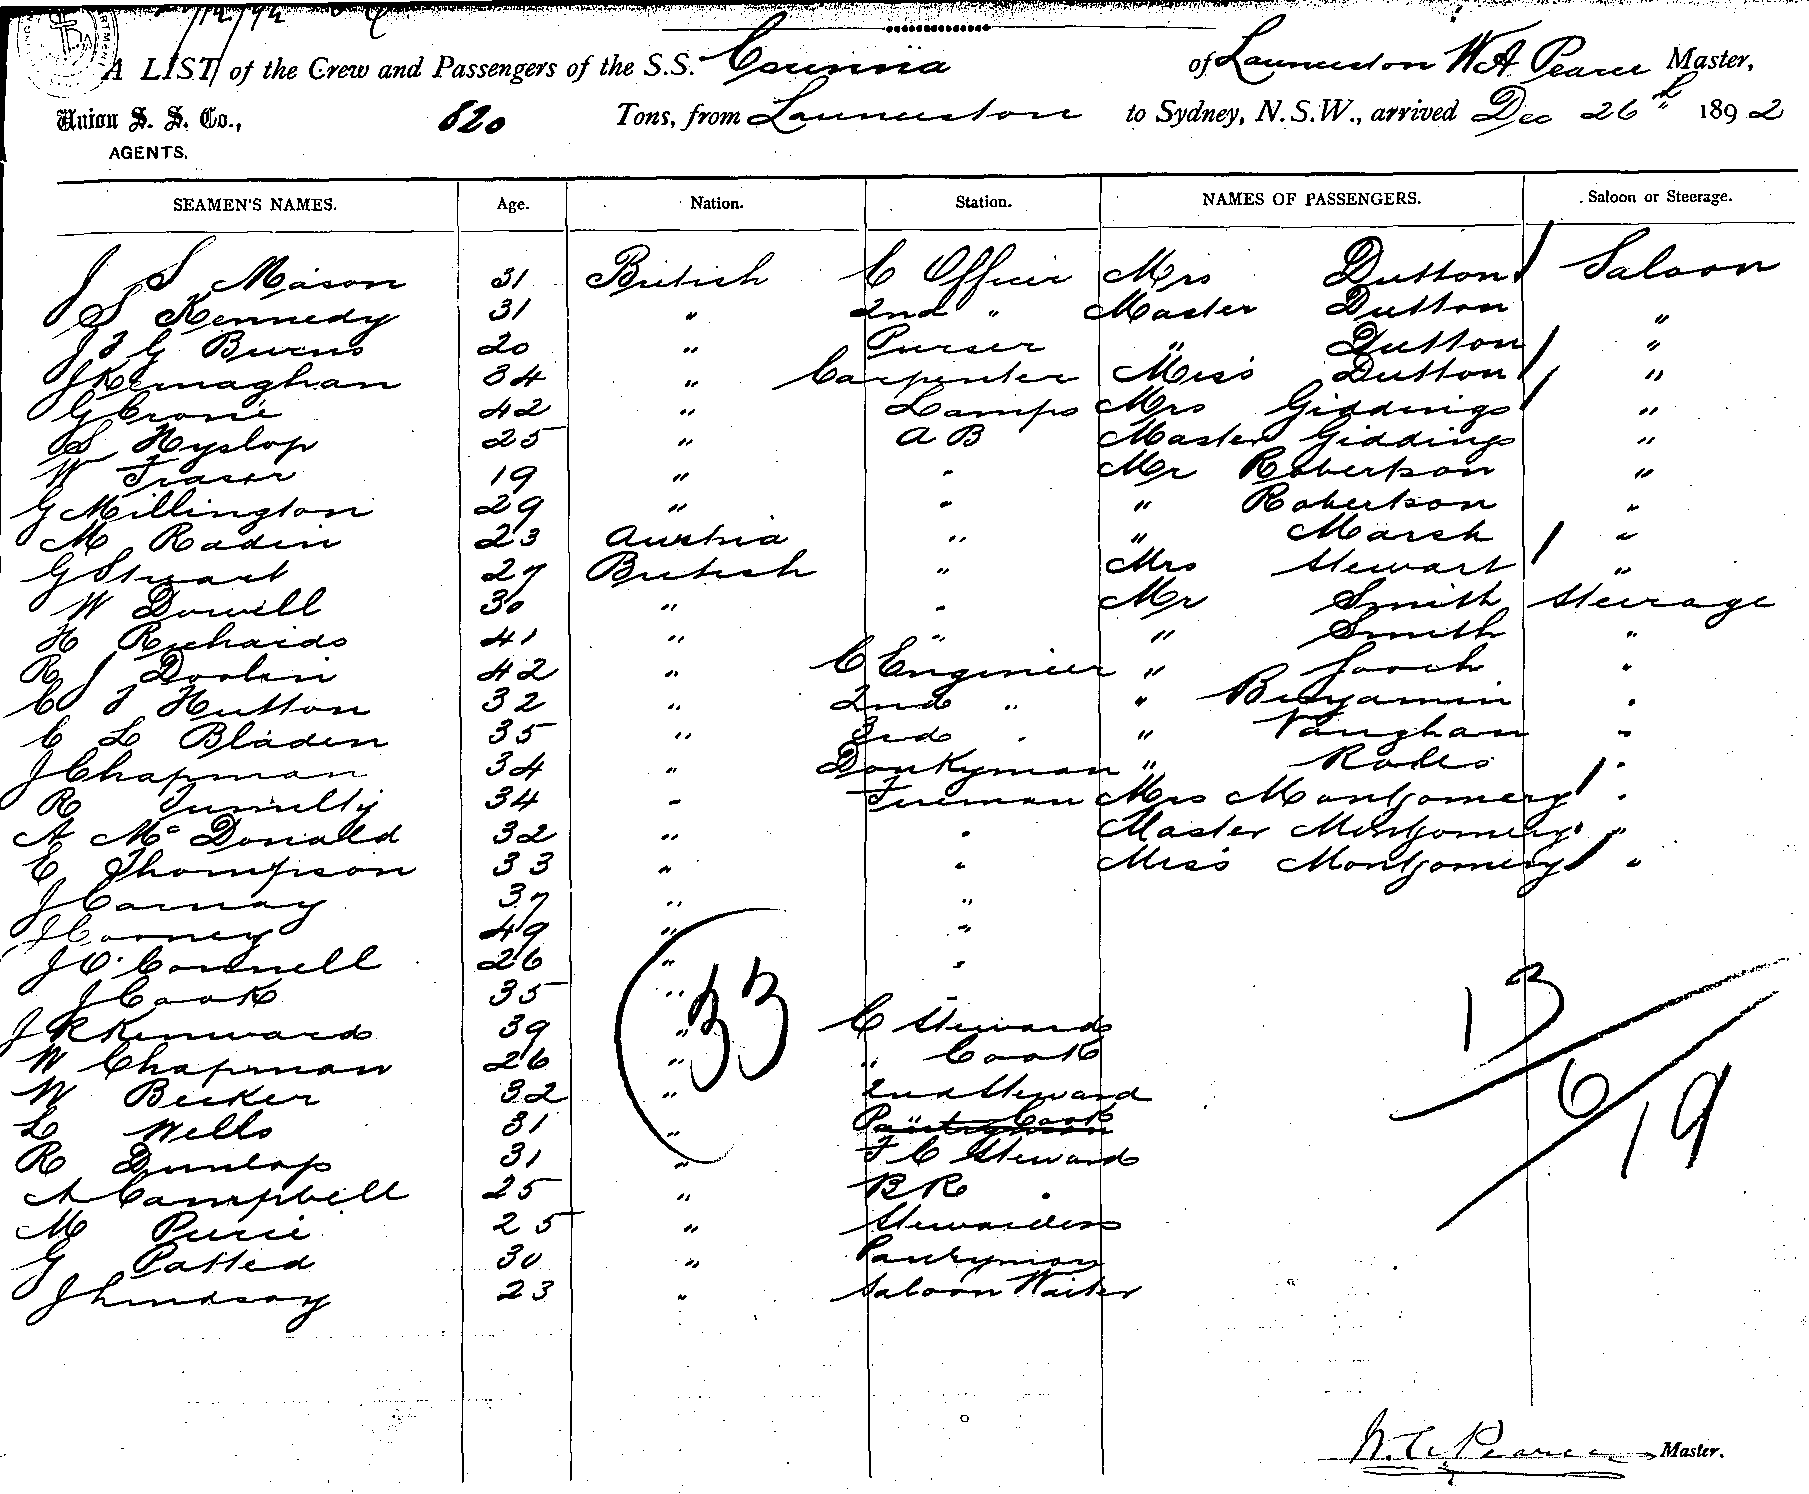 A LIST of the Crew and Passengers of the S.S. Corinna of Launceston W A Pearce Master,
Union S. S. Co., 820 Tons, from Launceston to Sydney, N.S.W., arrived Dec 26th 1892
AGENTS.
SEAMEN'S NAMES. Age. Nation. Station. NAMES OF PASSENGERS. Saloon or Steerage.
J S Mason 31 British C Officer Mrs Dutton Saloon
S Kennedy 31 " 2nd " Master Dutton "
J G Burns 20 " Purser " Dutton "
J Kernaghan 34 " Carpenter Miss Dutton "
G Crone 42 " Lamps Mrs Giddings "
S Hyslop 25 " A B Master Giddings "
W Fraser 19 " " Mr Robertson "
G Millington 29 " " " Robertson "
M Radin 23 Austria " " Marsh "
G Stuart 27 British " Mrs Stewart "
W Dowill 30 " " Mr Smith Steerage
H Richards 41 " " " Smith "
R J Doolin 42 " C Engineer " Gooch "
C J Hutton 32 " 2nd " " Benjamin "
C L Bladen 35 " 3rd " " Vaughan "
J Chapman 34 " Donkyman " "
R 34 " Fireman Mrs Montgomery "
A McDonald 32 " " Master Montgomery "
E Thompson 33 " " Miss Montgomery "
J Carnay 37 " "
J Cooney 49 " "
J O'Connell 26 " "
J Cook 35 " "
J R Kenward 39 " C Steward
W Chapman 26 " " Cook
W Becker 32 " 2nd Steward
L Wells 31 " " Cook
R Dunlop 31 " F C Steward
A Campbell 25 " B R "
M Purie 25 " Stewardess
G Patted 30 " Pantryman
J Lindsay 23 " Saloon Waiter
33
13
6
19
W. A. Pearce Master.